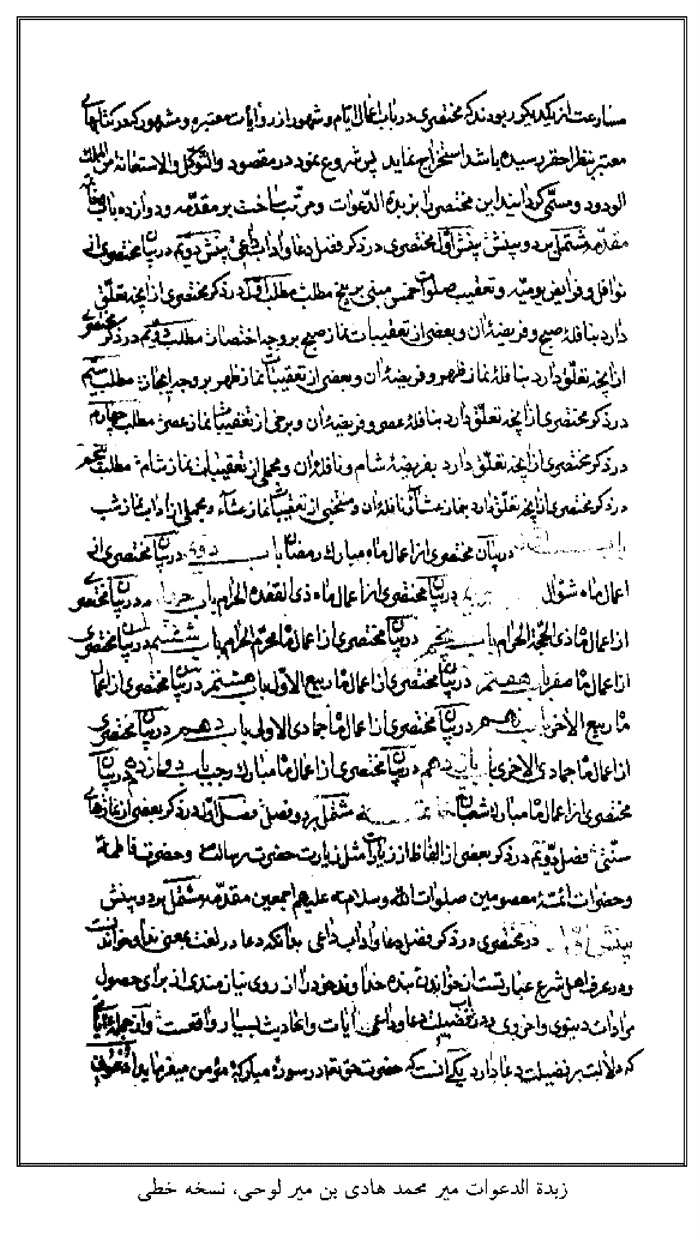 مسارعت از یکدیگر ربودند که مختصری در باب اعمال ایام و شهور از روایات معتبره و مشهور که در کتابهای
معتبر بنظر احقر رسیده باشد استخراج نماید پس شروع نمود در مقصود والتوکل والاستعانة من الملک
الودود و مسمی گردانید این مختصر را بزبدة الدعوات و مرتب ساخت بر مقدمه و دوازده باب و خاتمه
مقدمه مشتمل بر دو بینش بینش اول مختصری در ذکر فضل دعا و آداب داعی بینش دویم در بیان مختصری از
نوافل و فرایض یومیه و تعقیب صلوات خمس مبنی بر پنج مطلب مطلب اول در ذکر مختصری از آنچه تعلق
دارد بنافله صبح و فریضه آن و بعضی از تعقیبات نماز صبح بر وجه اختصار مطلب دویم در ذکر مختصری
از آنچه تعلق دارد بنافله نماز ظهر و فریضه آن و بعضی از تعقیبات نماز ظهر بر وجه ایجاز مطلب سیم
در ذکر مختصری از آنچه تعلق دارد بنافله عصر و فریضه آن و برخی از تعقیبات نماز عصر مطلب چهارم
در ذکر مختصری از آنچه تعلق دارد بفریضه شام و نافله آن و مجملی از تعقیبات نماز شام مطلب پنجم
در ذکر مختصری از آنچه تعلق دارد بنماز عشا و نافله آن و منتخبی از تعقیبات نماز عشاء و مجملی از آداب نماز شب
باب در بیان مختصری از اعمال ماه مبارک رمضان باب دویم در بیان مختصری از
اعمال ماه شوال در بیان مختصری از اعمال ماه ذی القعده الحرام باب در بیان مختصری
از اعمال ماه ذی الحجة الحرام باب پنجم در بیان مختصری از اعمال ماه محرم الحرام باب ششم در بیان مختصری
از اعمال ماه صفر باب هفتم در بیان مختصری از اعمال ماه ربیع الاول باب هشتم در بیان مختصری از اعمال
ماه ربیع الاخر باب نهم در بیان مختصری از اعمال ماه جمادی الاولی باب دهم در بیان مختصری
از اعمال ماه جمادی الاخری باب در بیان مختصری از اعمال ماه مبارک رجب باب دوازدهم در بیان
مختصری از اعمال ماه مبارک شعبان خاتمه مشتمل بر دو فصل فصل اول در ذکر بعضی از نمازهای
سنتی فصل دویم در ذکر بعضی از الفاظ از زیارات مثل زیارت حضرت رسالت و حضرت فاطمه
و حضرات ائمه معصومین صلوات الله و سلامه علیهم اجمعین مقدمه مشتمل بر دو بینش
بینش اول در مختصری در ذکر فضل دعا و آداب داعی بدانکه دعا در لغت بمعنی ندا و خواندنست
و در عرف اهل شرع عبارتست از خواندن بنده خداوند خود را از روی نیازمندی از برای حصول
مرادات دنیوی و اخروی و در باب فضیلت دعا و داعی آیات و احادیث بسیار واقعست و از جمله آیاتی
که دلالت بر فضیلت دعا دارد یکی آنست که حضرت حق تعالی در سوره مبارکه مؤمن میفرماید ادعونی
زبدة الدعوات میر محمد هادی بن میر لوحی، نسخه خطی